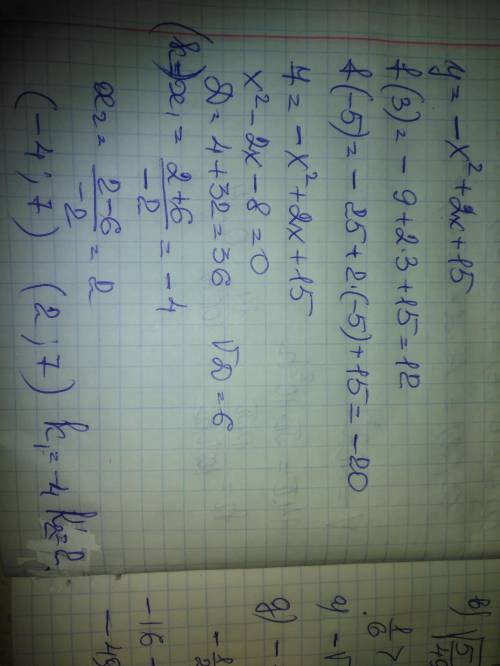 y = -x² + 2x + 15
f(3) = -9 + 2·3 + 15 = 12
f(-5) = -25 + 2·(-5) + 15 = -20
7 = -x² + 2x + 15
x² - 2x - 8 = 0
D = 4 + 32 = 36 √D = 6
(k=) x₁ = (2+6)/(-2) = -4
x₂ = (2-6)/(-2) = 2
(-4; 7) (2; 7) k₁ = -4 k₂ = 2.
в) √5
49
g) -
-16 -
-49